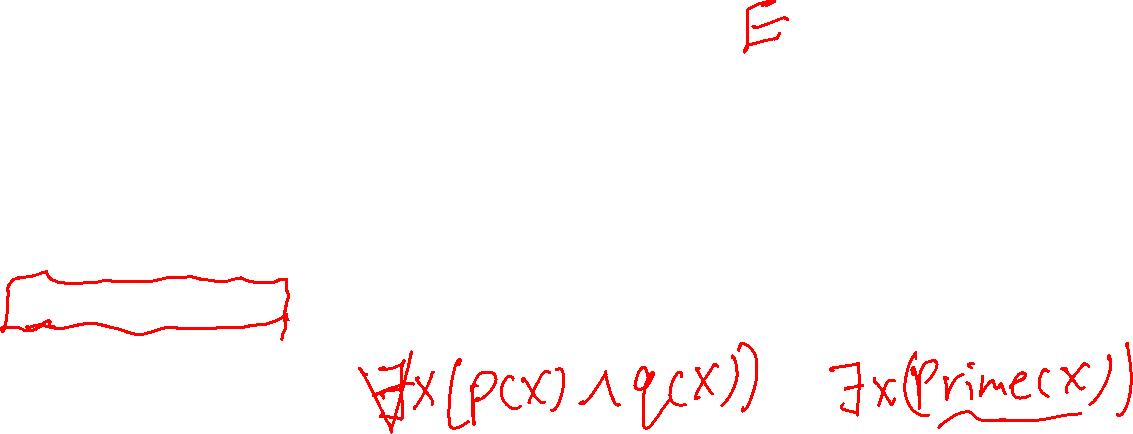 E
∀x(p(x) ∧ q(x)) ∃x(Prime(x))